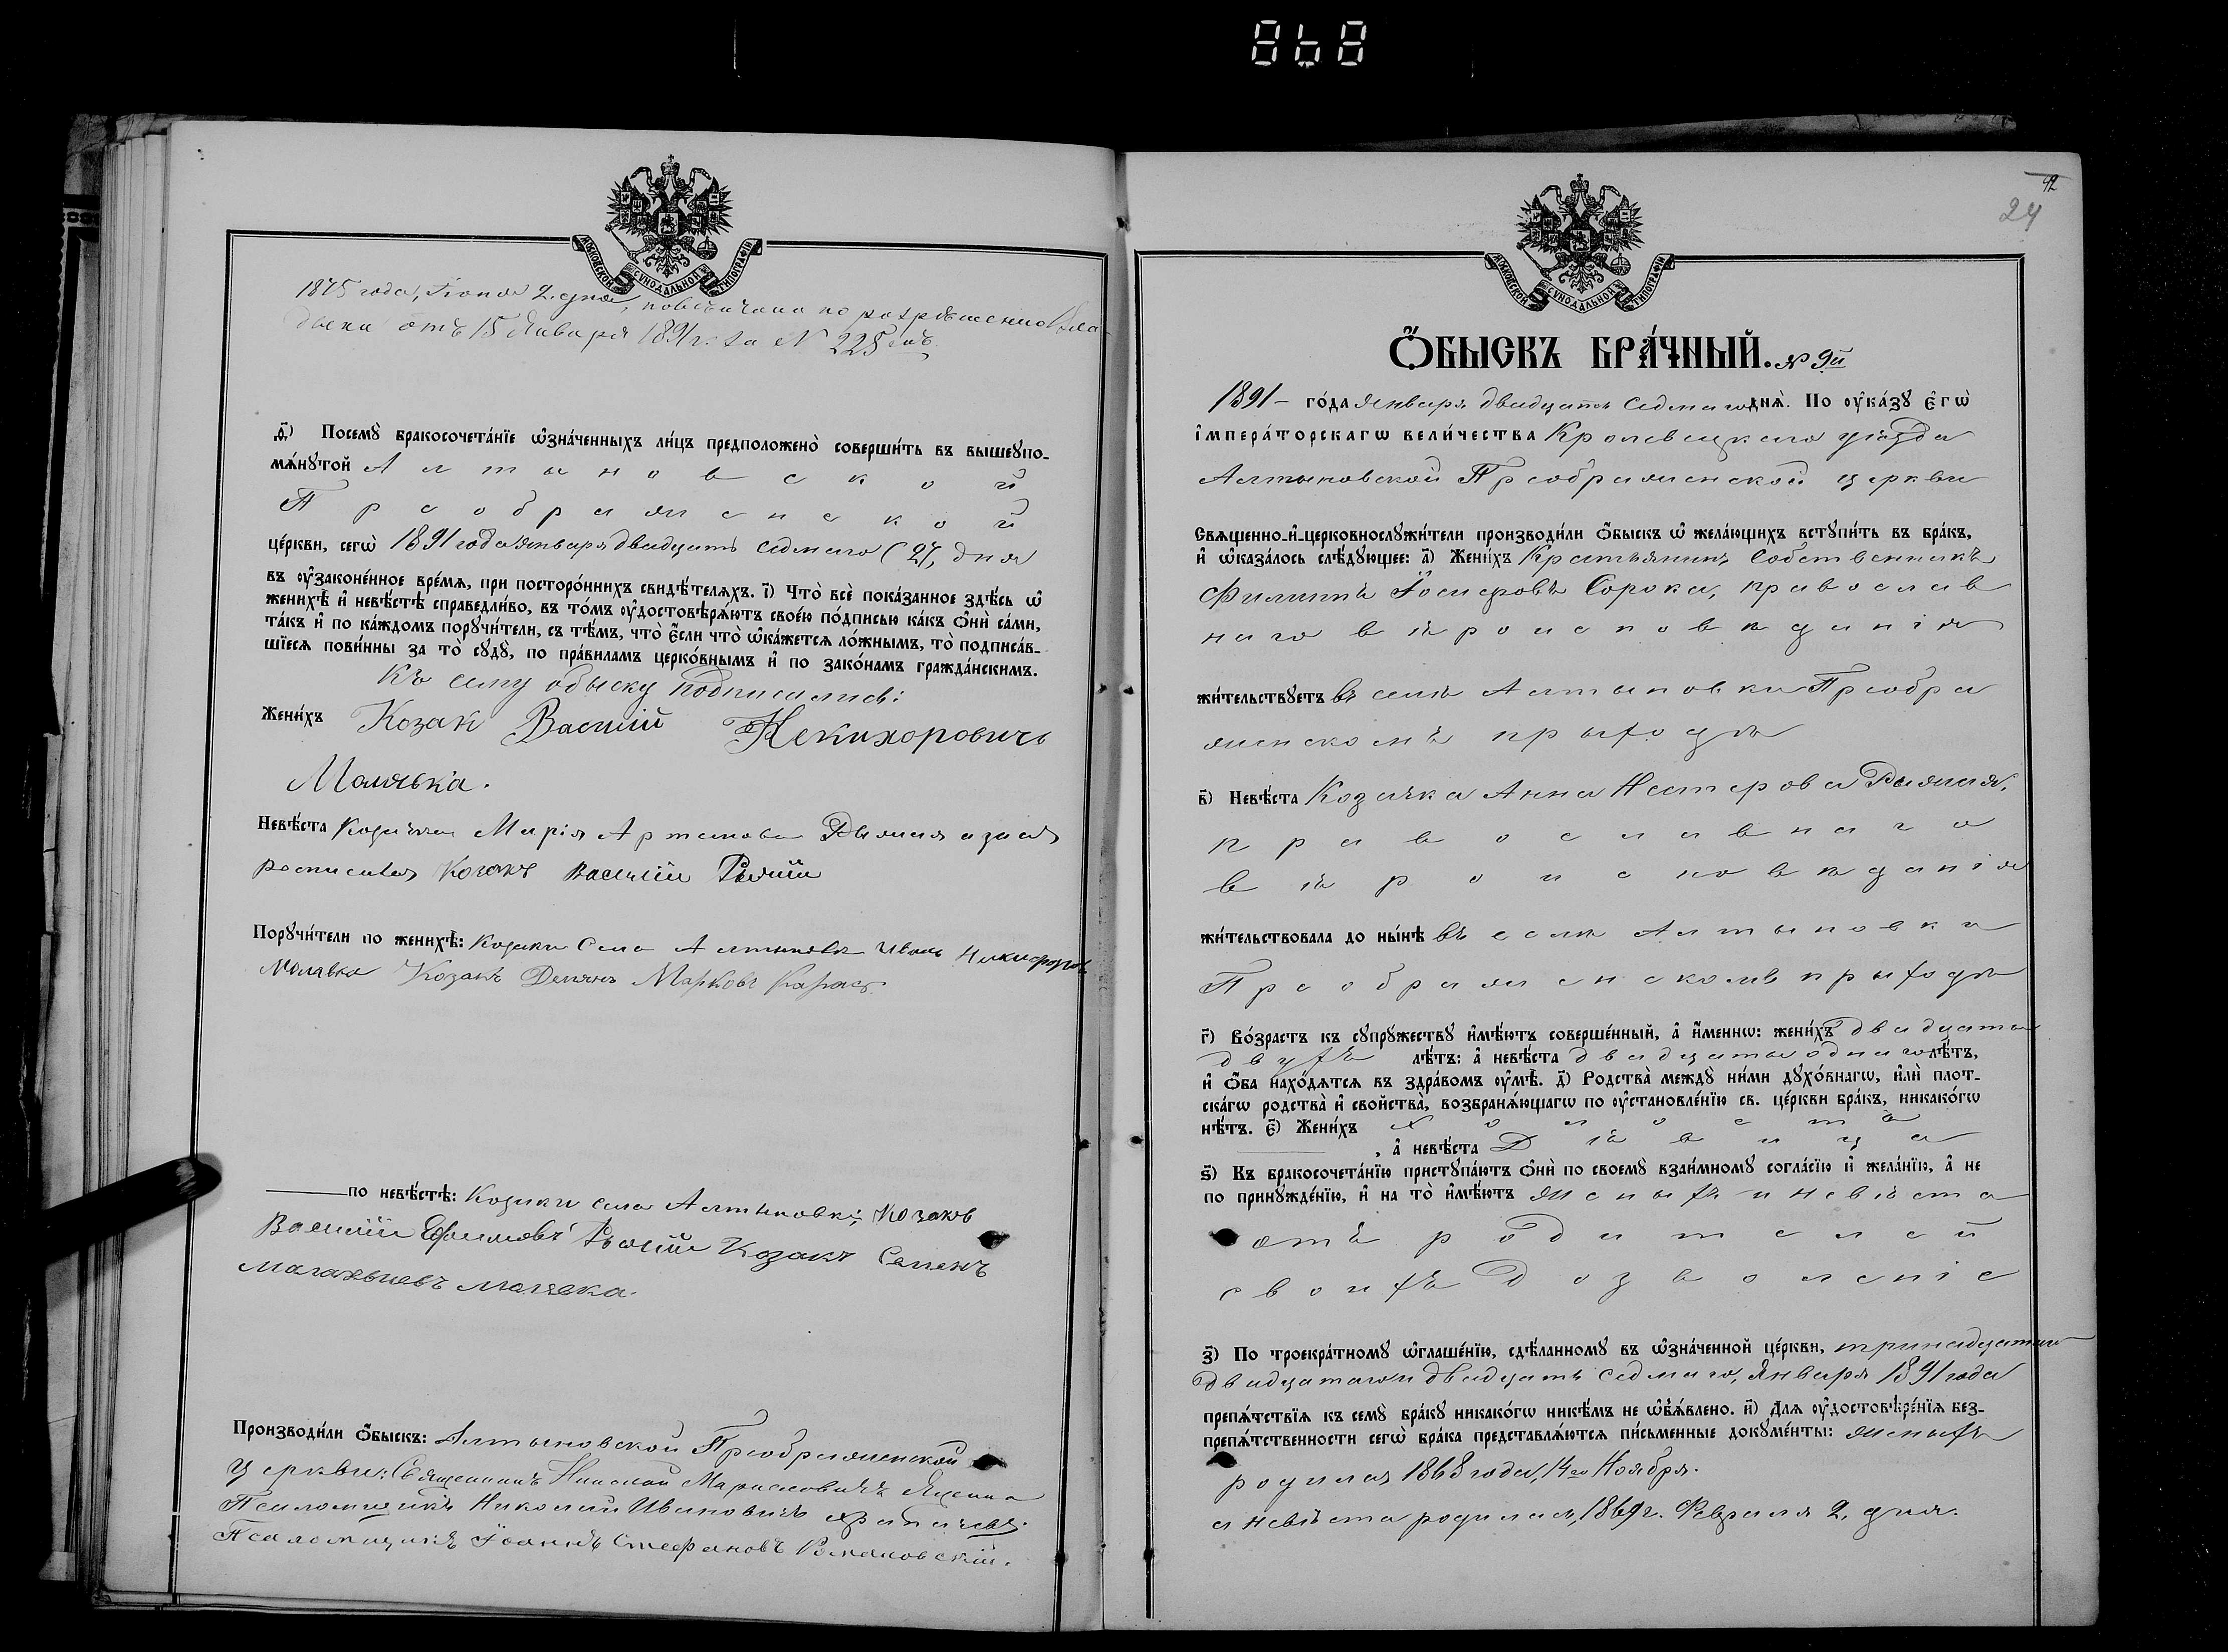 868
МОСКОВСКОЙ СУНОДАЛЬНОЙ ТИПОГРАФІИ
1875 года, Іюня 2 дня, повѣнчана по разрѣшенію Вла-
дыки отъ 15 Января 1891 г. за № 225
д҃і) Посемꙋ̀ бракосочета́нїе ѡ҆зна́ченныхъ ли́цъ предположено̀ соверши́ть въ вышеꙋпо-
мѧ́нꙋтой Алтыновской
Преображенской
це́ркви, сегѡ̀ 1891 года января двадцать седмаго (27) дня
въ ᲂу҆законе́нное вре́мѧ, при посторо́ннихъ свидѣ́телѧхъ. і҃) Что̀ всѐ пока́занное здѣ́сь ѡ҆
женихѣ̀ и҆ невѣ́стѣ справедли́во, въ то́мъ ᲂу҆достовѣрѧ́ютъ свое́ю по́дписью ка́къ ѻ҆нѝ са́ми,
та́къ и҆ по ка́ждомъ порꙋчи́тели, съ тѣ́мъ, что̀ є҆́сли что̀ ѡ҆ка́жетсѧ ло́жнымъ, то̀ подписа́в-
шїесѧ пови́нны за то̀ сꙋдꙋ̀, по пра́виламъ церко́внымъ и҆ по зако́намъ гражда́нскимъ.
Къ сему обыску подписались:
Жени́хъ Козак Василій Некихоровичь
Малявка.
Невѣ́ста Козачка Марія Артемова Рыжая а за ея
росписався Козакъ Василій Рижій
Порꙋчи́тели по женихѣ̀: Козаки Села Алтыновки Иванъ Никифоровъ
Малявка Козакъ Демянъ Марковъ Карась
по невѣ́стѣ: Козаки села Алтыновки; Козакъ
Василій Ефимовъ Рижій Козакъ Семенъ
Малявка.
Производи́ли ѻ҆́быскъ: Алтыновской Преображенской
Церкви: Священникъ Николай Ященко
Псаломщикъ Николай Ивановичъ
Псаломщикъ Іоаннъ Стефановъ Романовскій.
42
24
МОСКОВСКОЙ СУНОДАЛЬНОЙ ТИПОГРАФІИ
Ѻ҆́БЫСКЪ БРА́ЧНЫЙ. № 9й
1891 – го́да января двадцать седмаго днѧ̀. По ᲂу҆ка́зꙋ є҆гѡ̀
и҆мпера́торскагѡ вели́чества Кролевецкаго уѣзда
Алтыновской Преображенской церкви
Свѧще́нно-и҆-церковнослꙋжи́тели производи́ли ѻ҆́быскъ ѡ҆ жела́ющихъ встꙋпи́ть въ бра́къ,
и҆ ѡ҆каза́лось слѣ́дꙋющее: а҃) Жени́хъ Крестьянинъ Собственникъ
Филиппъ Іосифовъ Сорока, православ
наго вѣроисповѣданія
жи́тельствꙋетъ въ селѣ Алтыновки Преобра
женскомъ прыходѣ
в҃) Невѣ́ста Козачка Анна Нестерова Рыжая,
православнаго
вѣроисповѣданія
жи́тельствовала до ны́нѣ въ селѣ Алтыновки
Преображенскомъ прыходѣ
г҃) Во́зрастъ къ сꙋпрꙋжествꙋ и҆мѣ́ютъ соверше́нный, а҆ и҆́меннѡ: жени́хъ двадцати
двухъ лѣ́тъ: а҆ невѣ́ста двадцаты одного лѣ́тъ,
и҆ ѻ҆́ба нахо́дѧтсѧ въ здра́вомъ ᲂу҆мѣ̀. д҃) Родства̀ междꙋ̀ ни́ми дꙋхо́внагѡ, и҆лѝ плот-
ска́гѡ родства̀ и҆ свойства̀, возбранѧ́ющагѡ по ᲂу҆становле́нїю св. це́ркви бра́къ, никако́гѡ
нѣ́тъ. є҃) Жени́хъ холостъ
, а҆ невѣ́ста Дѣвица
ѕ҃) Къ бракосочета́нїю пристꙋпа́ютъ ѻ҆нѝ по своемꙋ̀ взаи́мномꙋ согла́сїю и҆ жела́нїю, а҆ не
по принꙋжде́нїю, и҆ на то̀ и҆мѣ́ютъ женыхъ и невѣста
отъ родителей
своихъ дозволеніе
з҃) По троекра́тномꙋ ѡ҆глаше́нїю, сдѣ́ланномꙋ въ ѡ҆зна́ченной це́ркви, тринадцатаго
двадцатаго и двадцать седмаго, Января 1891 года
препѧ́тствїѧ къ семꙋ̀ бра́кꙋ никако́гѡ никѣ́мъ не ѡ҆б̾ѧ́влено. и҃) Длѧ ᲂу҆достовѣре́нїѧ без-
препѧ́тственности сегѡ̀ бра́ка представлѧ́ютсѧ пи́сьменные докꙋме́нты: женыхъ
родился 1868 года, 14го Ноября.
а невѣста родилась, 1869 г. Февраля 2, дня.